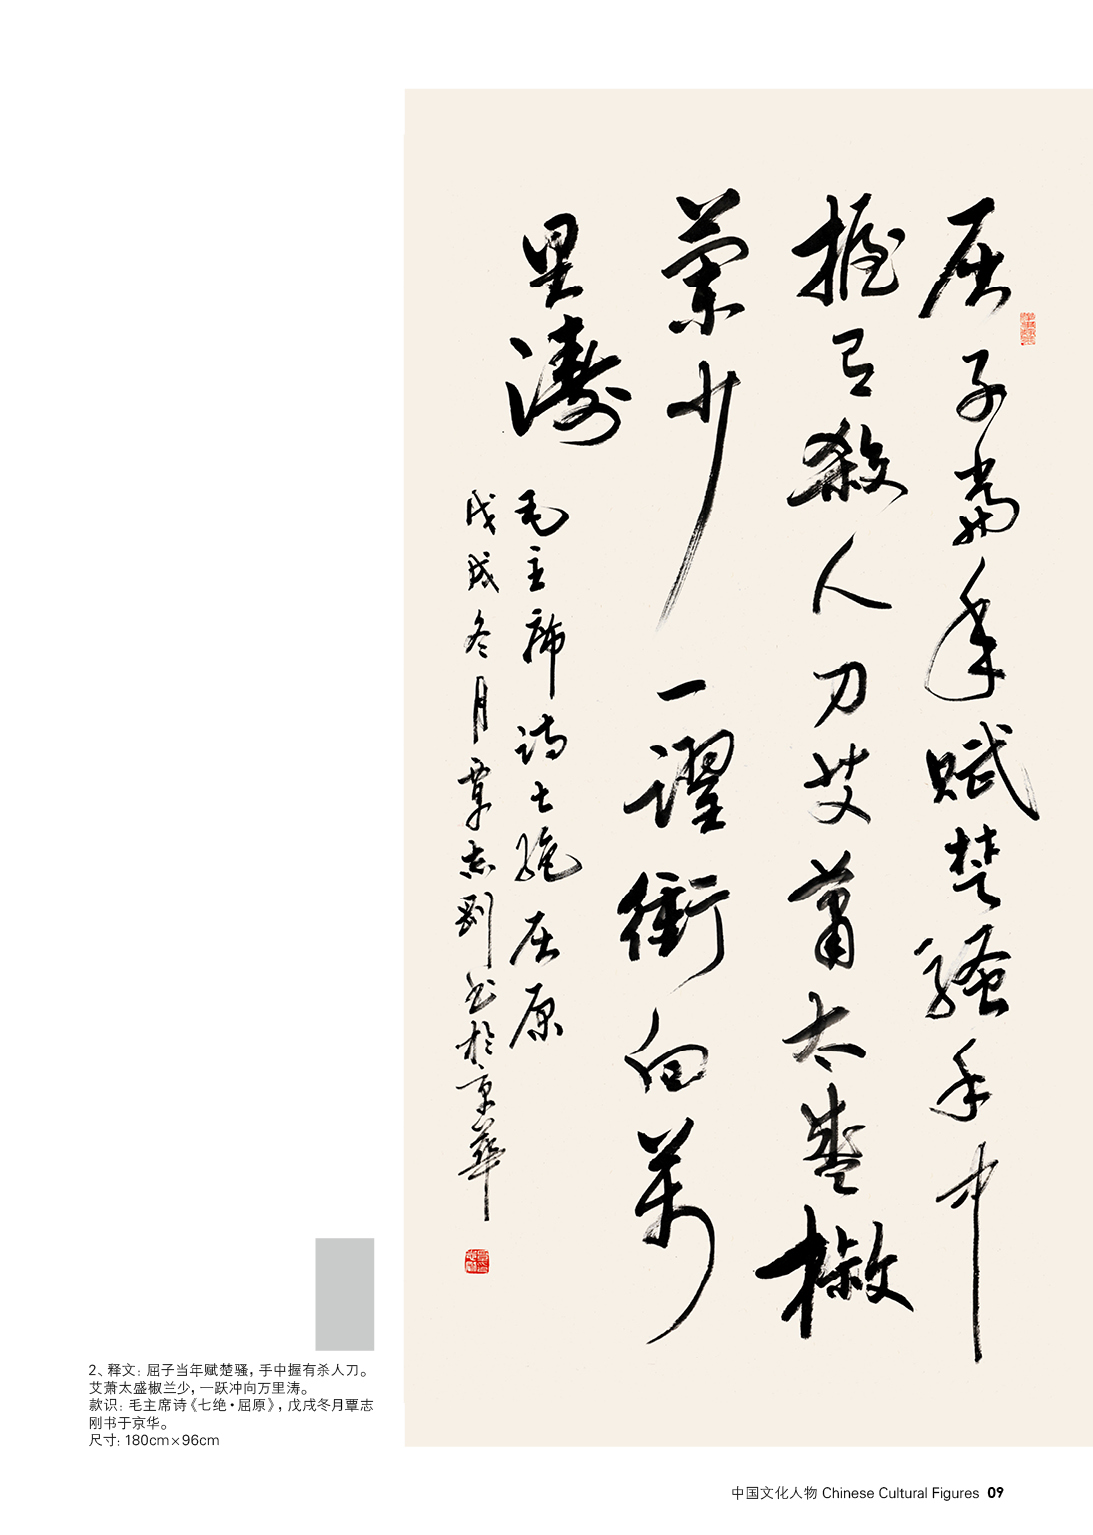 屈子當年賦楚騷手中
握有殺人刀艾蕭太盛椒
蘭少一躍衝向萬
里濤
毛主席詩七絕屈原
戊戌冬月覃志剛书於京華
2、释文：屈子当年赋楚骚，手中握有杀人刀。
艾萧太盛椒兰少，一跃冲向万里涛。
款识：毛主席诗《七绝·屈原》，戊戌冬月覃志
刚书于京华。
尺寸：180cm×96cm
中国文化人物 Chinese Cultural Figures 09